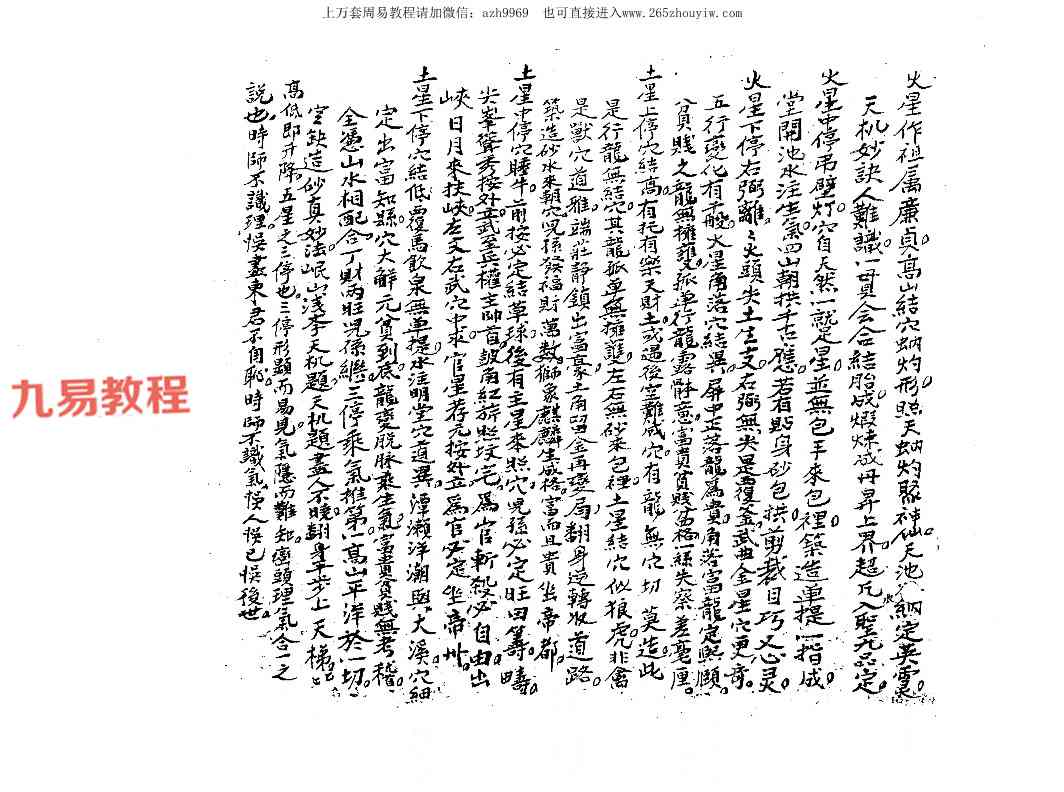 上万套周易教程请加微信：azh9969 也可直接进入www.265zhouyiw.com
火星作祖屬廉貞高山結穴蚋灼形照天蚋灼聚神仙天池水納定英靈
天机妙訣人難識一貫会合結胎成煅煉成丹昇上界超凡入聖九品定
火星中停吊壁灯穴自天然一就足星並無包手來包裡築造单提一指成
堂開池水注生氣四山朝拱千古應若有貼身砂包拱剪裁目巧又心灵
火星下停右弼離離火頭尖土生支右弼無尖是覆釜武曲金星穴更奇
五行變化有千般火星角落穴結異屏中正落龍為貴角落富龍定無願
貧賤之龍無擁護孤单行龍露醉意富貴貧賤落格一絲失察差毫厘
土星上停穴結高有托有樂天財土或過後空難成穴有龍無穴切莫造此
是行龍無結穴其龍孤单無擁護左右無砂來包裡土星結穴似狼虎非禽
是獸穴道雅端莊靜鎮出富豪土角留金再變局翻身逆轉收道路
築造砂水來朝穴兒孫發福財萬数獅象麒麟生成格富而且貴坐帝都
土星中停穴睡牛前按必定結草球後有主星來照穴児孫必定旺田籌疇
尖峯聳秀按外立武至兵權主帥首鼓角紅旗照坟宅為官斬殺必自由出
峽日月來扶峽左文右武穴中求官星荐元按外立為官必定坐帝州
土星下停穴結低覆馬飲泉無单提水注明堂穴道異潭瀨洋潮與大溪穴細
定出富知縣穴大解元貧到底龍变脱脉乘生氣富貴貧賤無考稽
全憑山水相配合丁財两旺児孫繼三停乘氣推第一高山平洋於一切
定鈌造砂真妙法岷山浅李天机題天机題盡人不曉翻身平步上天梯
高低即升降五星之三停也三停形顯而易見氣隱而難知巒頭理氣合一之
説也時師不識理悮盡東君不自恥時師不識氣悮人悮己悮後世
九易教程